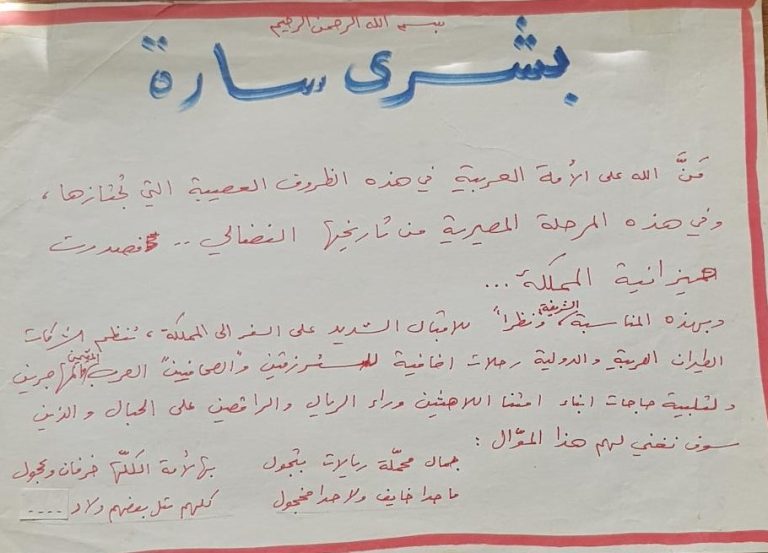 بسم الله الرحمن الرحيم
بشرى سارة
مَنَّ الله على الأمة العربية في هذه الظروف العصيبة التي تجتازها،
وفي هذه المرحلة المصيرية من تاريخها النضالي .. فصدرت
ميزانية المملكة ...
وبهذه المناسبة الشريفة، ونظراً للاقبال الشديد على السفر الى المملكة، تنظم شركات
الطيران العربية والدولية رحلات اضافية للمسترزقين و"الصحافيين" العرب المقيمين والمهاجرين
ولتلبية حاجات ابناء امتنا اللاهثين وراء الريال والراقصين على الحبال والذين
سوف نغني لهم هذا الموّال :
جمال محمّلة ريالات بتجول بهالأمة الكلّها خرفان وعجول
ما حدا خايف ولا حدا مخجول كلهم متل بعضهم ولاد ....